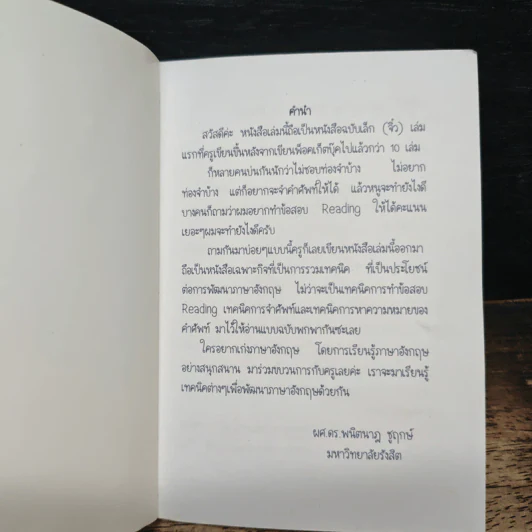 คำนำ
สวัสดีค่ะ หนังสือเล่มนี้ถือเป็นหนังสือฉบับเล็ก (จิ๋ว) เล่ม
แรกที่ครูเขียนขึ้นหลังจากเขียนพ็อคเก็ตบุ๊คไปแล้วกว่า 10 เล่ม
ก็หลายคนบ่นกันนักว่าไม่ชอบท่องจำบ้าง ไม่อยาก
ท่องจำบ้าง แต่ก็อยากจะจำคำศัพท์ให้ได้ แล้วหนูจะทำยังไงดี
บางคนก็ถามว่าผมอยากทำข้อสอบ Reading ให้ได้คะแนน
เยอะๆผมจะทำยังไงดีครับ
ถามกันมาบ่อยๆแบบนี้ครูก็เลยเขียนหนังสือเล่มนี้ออกมา
ถือเป็นหนังสือเฉพาะกิจที่เป็นการรวมเทคนิค ที่เป็นประโยชน์
ต่อการพัฒนาภาษาอังกฤษ ไม่ว่าจะเป็นเทคนิคการทำข้อสอบ
Reading เทคนิคการจำศัพท์และเทคนิคการหาความหมายของ
คำศัพท์ มาไว้ให้อ่านแบบฉบับพกพากันซะเลย
ใครอยากเก่งภาษาอังกฤษ โดยการเรียนรู้ภาษาอังกฤษ
อย่างสนุกสนาน มาร่วมขบวนการกับครูเลยค่ะ เราจะมาเรียนรู้
เทคนิคต่างๆเพื่อพัฒนาภาษาอังกฤษด้วยกัน
ผศ.ดร.พนิตนาฏ ชูฤกษ์
มหาวิทยาลัยรังสิต